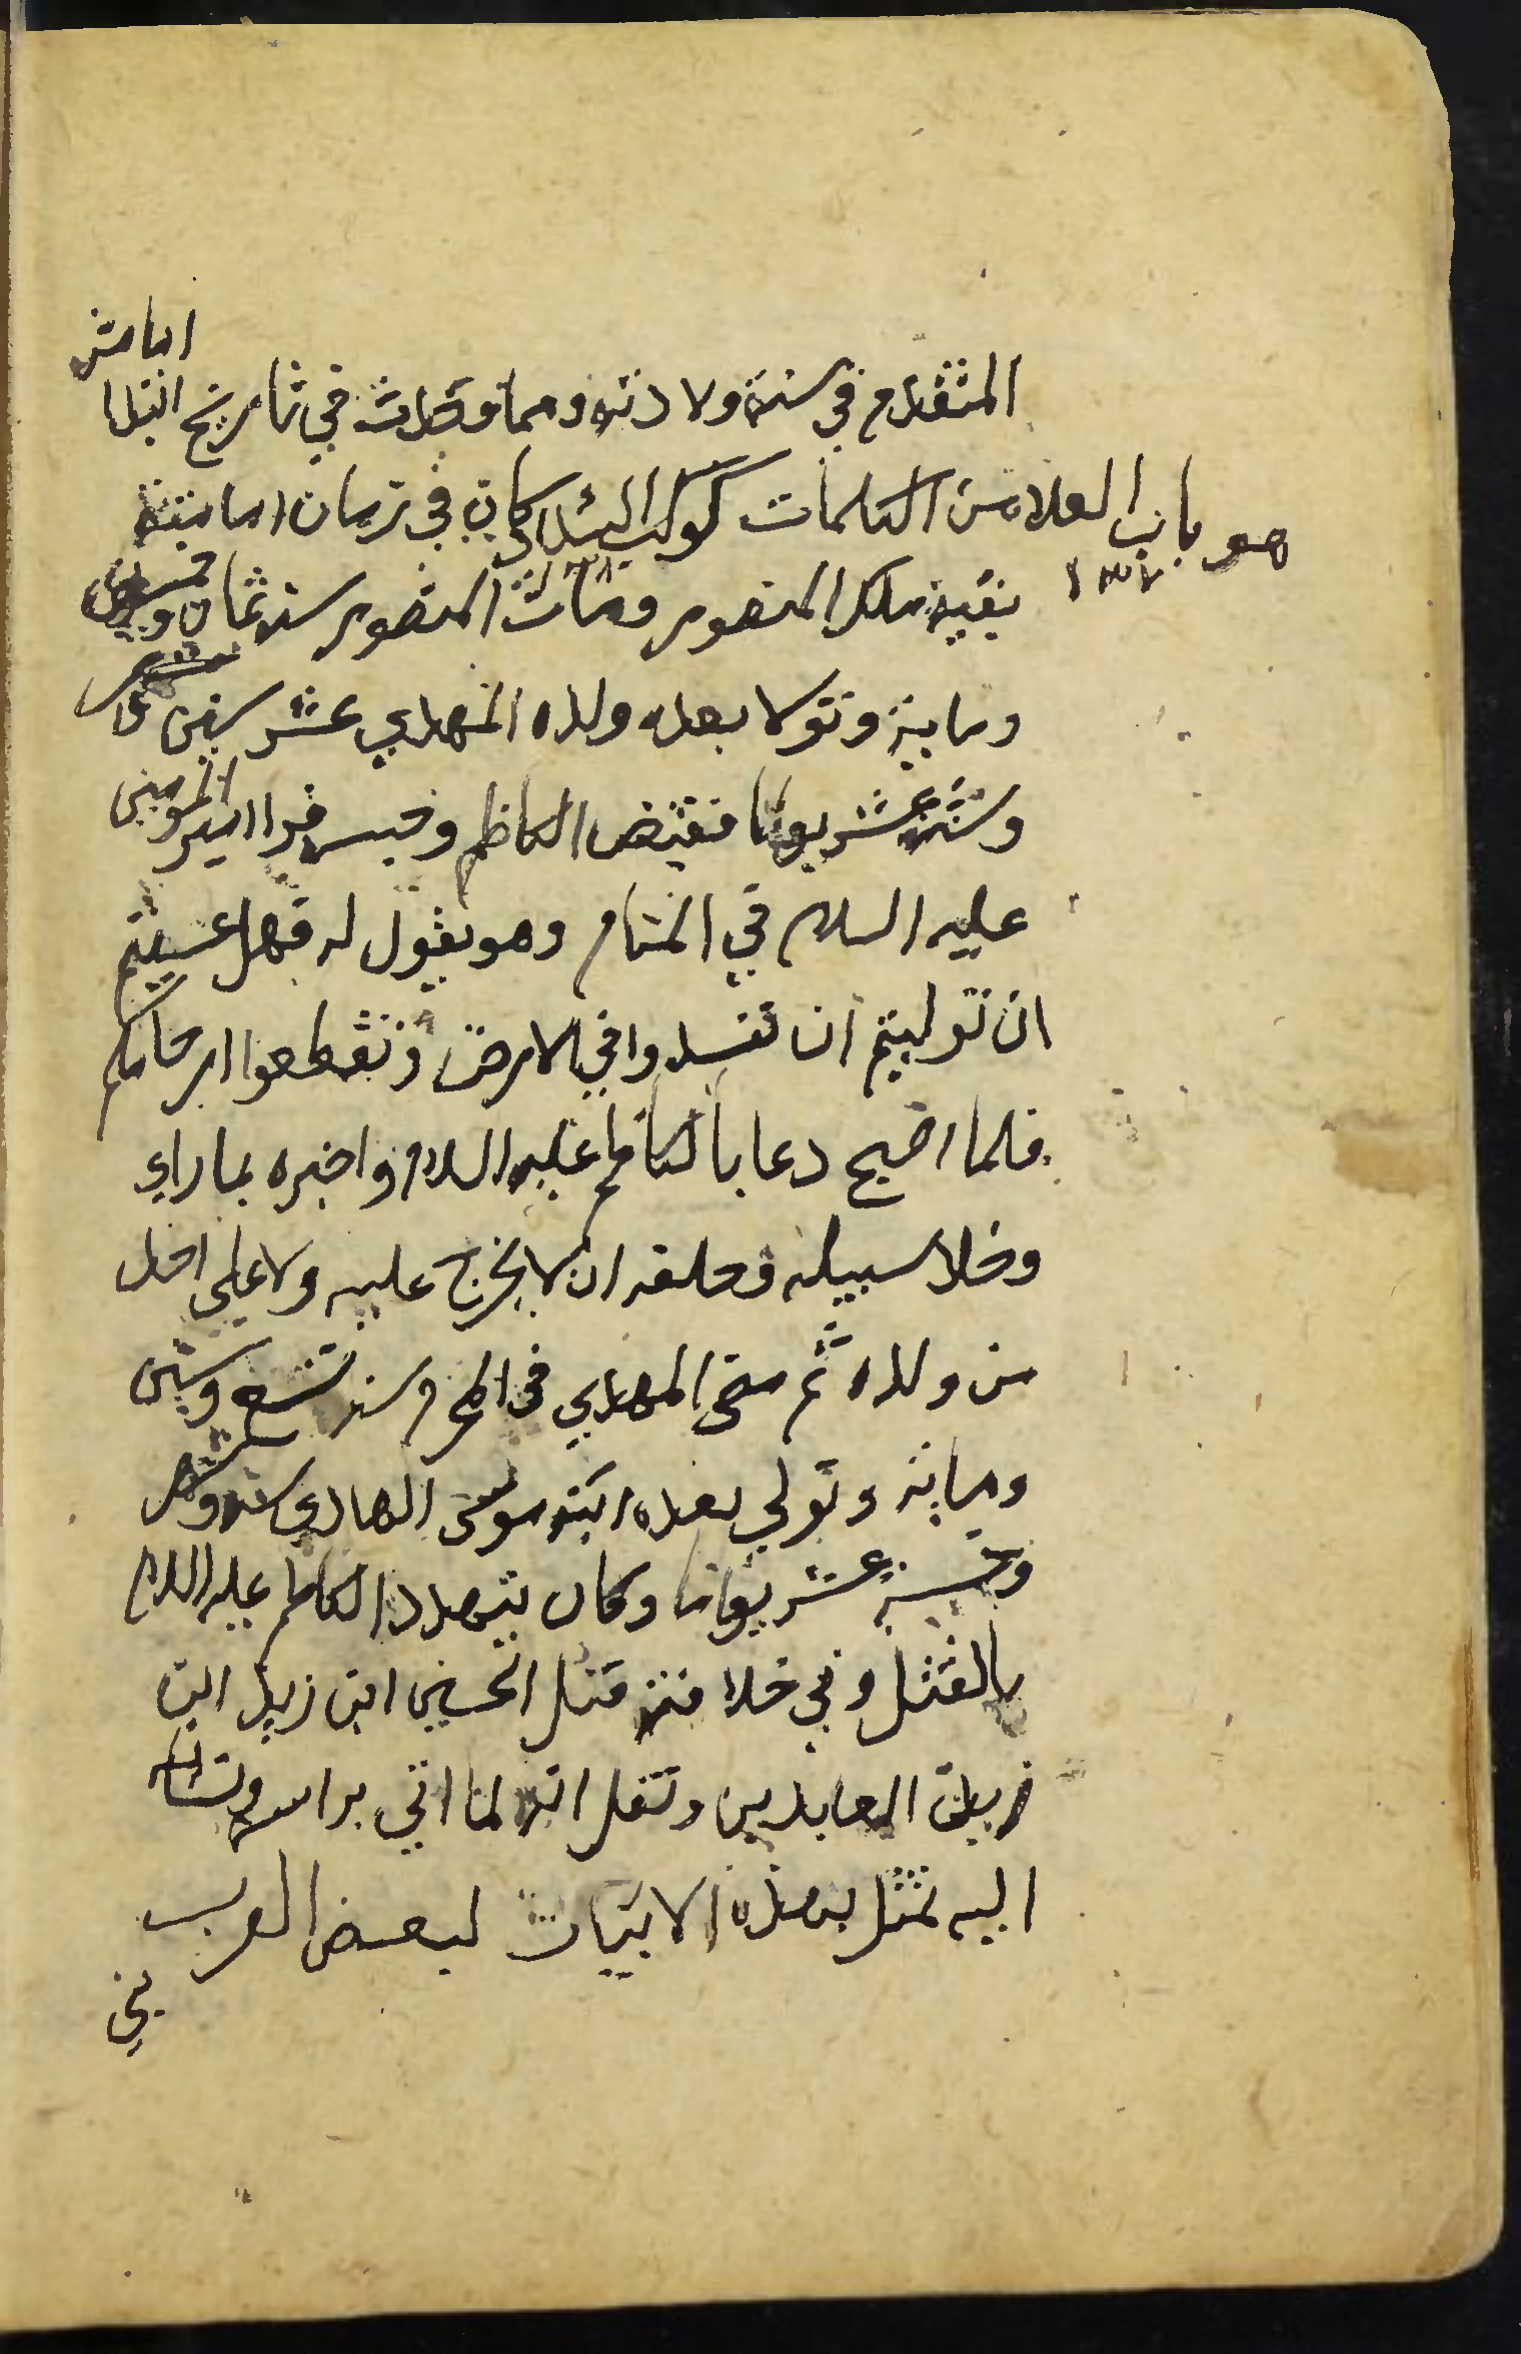 المتقدم في سنة ولادته ومما وجدت في تاريخ ابتدا امامته
هو باب العلا من الكلمات كوكب السداد كان في زمان امامته
١٣٧
بقية ملك المنصور ومات المنصور سنة ثمان وخمسين
وماية وتولا بعده ولده المهدي عشر سنين وشهر
وستة عشر يوما فقبض الكاظم وحبسه فرا امير المومنين
عليه السلام في المنام وهو يقول له فهل عسيتم
ان توليتم ان تفسدوا في الارض وتقطعوا ارحامكم
فلما اصبح دعا بالكاظم عليه السلام واخبره بما راي
وخلا سبيله وحلفه ان لا يخرج عليه ولا على احد
من ولده ثم مضى المهدي في المحرم سنة تسع وستين
وماية وتولي بعده ابنه موسى الهادي سنة وشهر
وخمسة عشر يوما وكان يتهدد الكاظم عليه السلام
بالقتل وفي خلافته قتل الحسين ابن زيد ابن
زين العابدين ونقل انه لما اتي براسه ونسائه
اليه تمثل بهذه الابيات لبعض العرب
بني